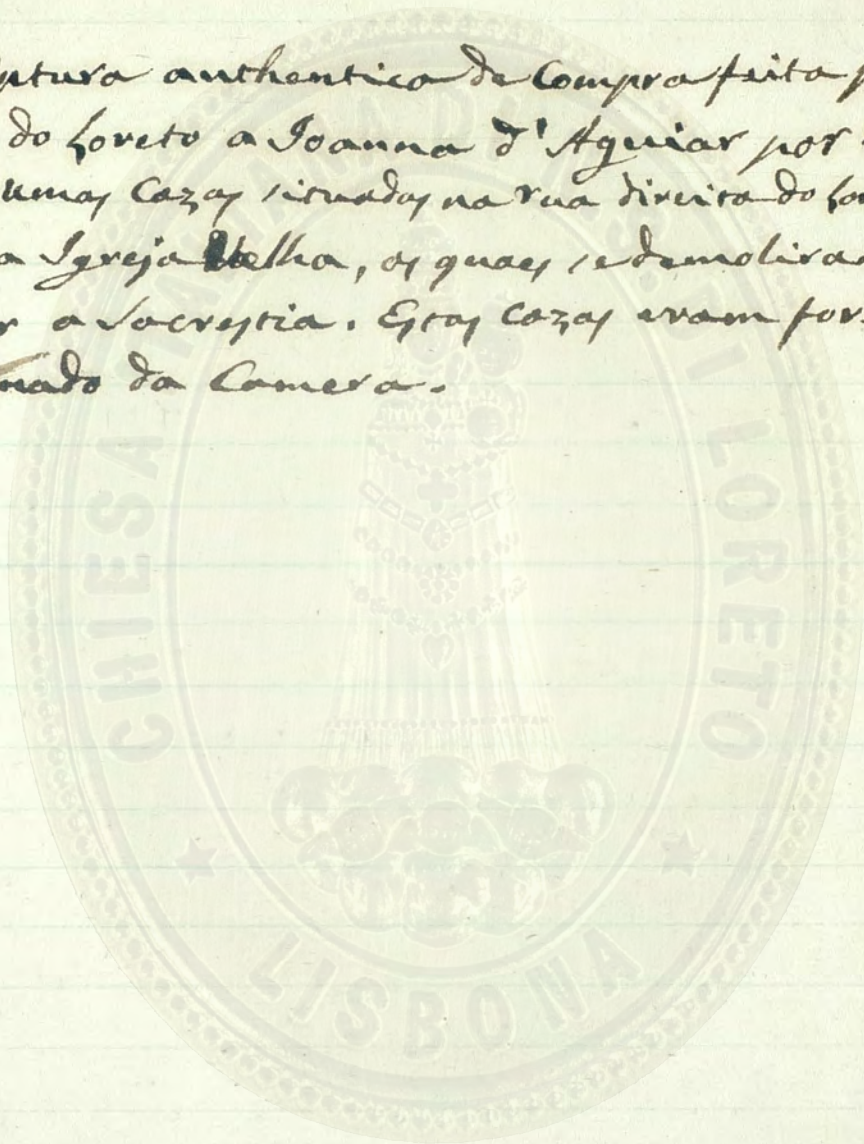 ptura authentica de Compra feita p
do Loreto a Joanna d'Aguiar por
umas Cazas situadas na rua direita do Lo
a Igreja Velha, as quaes se demolirao
r a Sacrestia. Estas Cazas eram for
nado da Camera.
CHIESA ITALIANA DI N. S. DI LORETO
LISBONA